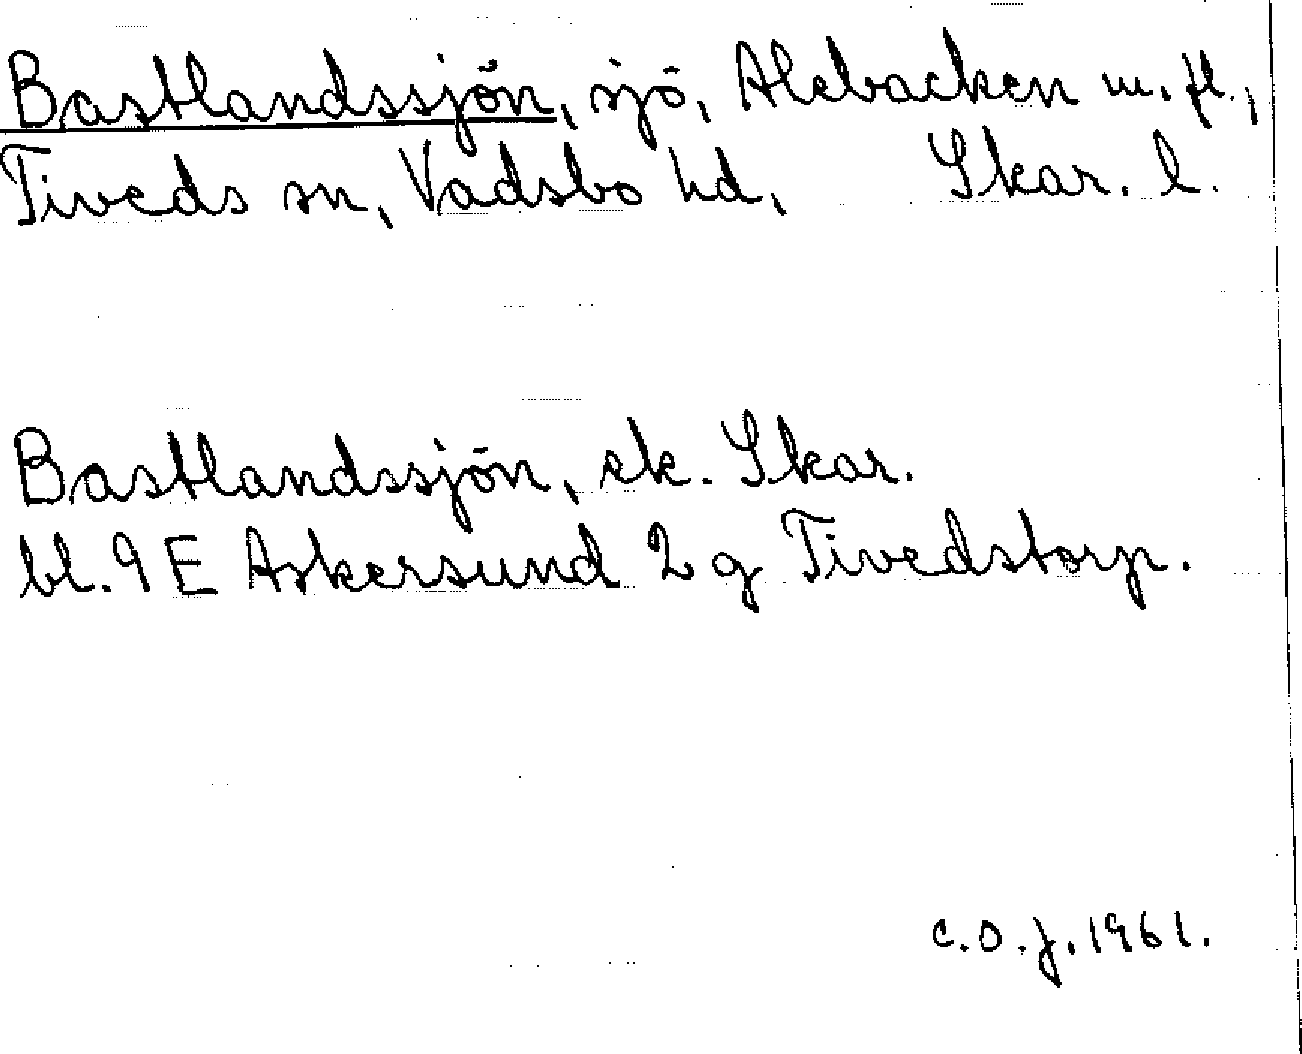 Bastlandssjön, sjö, Alebacken m. fl.,
Tiveds sn, Vadsbo hd, Skar. l.
Bastlandssjön, ek. Skar.
bl. 9 E Askersund 2 g Tivedstorp.
C.O.J. 1961.